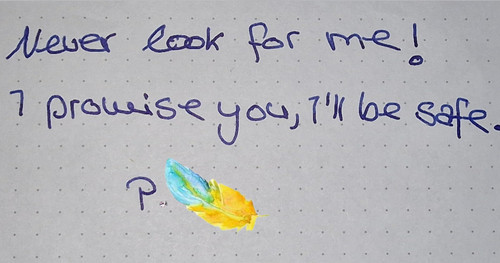 Never look for me!
I promise you, I'll be safe.
P.